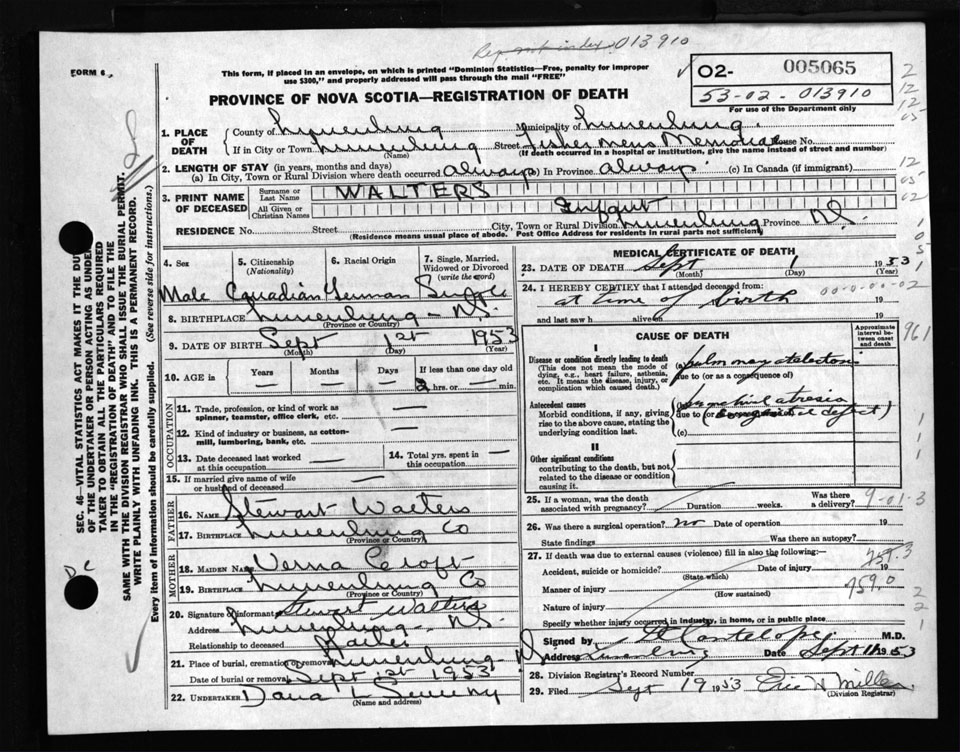 Repeat index 013910
FORM 6
This form, if placed in an envelope, on which is printed "Dominion Statistics—Free, penalty for improper
use $300," and properly addressed will pass through the mail "FREE"
O2- 005065
53-02-013910
For use of the Department only
PROVINCE OF NOVA SCOTIA—REGISTRATION OF DEATH
1. PLACE OF DEATH
County of Lunenburg Municipality of Lunenburg
If in City or Town Lunenburg Street Fishermens Memorial House No.
(Name) (If death occurred in a hospital or institution, give the name instead of street and number)
2. LENGTH OF STAY (in years, months and days)
(a) In City, Town or Rural Division where death occurred always (b) In Province always (c) In Canada (if immigrant)
3. PRINT NAME OF DECEASED
Surname or Last Name WALTERS
All Given or Christian Names Infant
RESIDENCE No. Street City, Town or Rural Division Lunenburg Province N.S.
(Residence means usual place of abode. Post Office Address for residents in rural parts not sufficient)
4. Sex
5. Citizenship (Nationality)
6. Racial Origin
7. Single, Married, Widowed or Divorced (write the word)
Male Canadian German Single
8. BIRTHPLACE Lunenburg - N.S.
(Province or Country)
9. DATE OF BIRTH Sept 1st 1953
(Month) (Day) (Year)
10. AGE in Years Months Days If less than one day old
— — — hrs. or — min.
OCCUPATION
11. Trade, profession, or kind of work as spinner, teamster, office clerk, etc. —
12. Kind of industry or business, as cotton-mill, lumbering, bank, etc. —
13. Date deceased last worked at this occupation —
14. Total yrs. spent in this occupation —
15. If married give name of wife or husband of deceased —
FATHER
16. NAME Stewart Walters
17. BIRTHPLACE Lunenburg Co
(Province or Country)
MOTHER
18. MAIDEN NAME Verna Croft
19. BIRTHPLACE Lunenburg Co
(Province or Country)
20. Signature of informant Stewart Walters
Address Lunenburg - N.S.
Relationship to deceased Father
21. Place of burial, cremation or removal Lunenburg N.S.
Date of burial or removal Sept 1st 1953
22. UNDERTAKER Dana L Sweeny
(Name and address)
MEDICAL CERTIFICATE OF DEATH
23. DATE OF DEATH Sept 1 1953
(Month) (Day) (Year)
24. I HEREBY CERTIFY that I attended deceased from:
at time of birth 19
and last saw h alive on 19
CAUSE OF DEATH
Approximate interval between onset and death
I
Disease or condition directly leading to death
(This does not mean the mode of dying, e.g., heart failure, asthenia, etc. It means the disease, injury, or complication which caused death.)
due to (or as a consequence of)
Antecedent causes
Morbid conditions, if any, giving rise to the above cause, stating the underlying condition last.
atresia
due to (or congenital defect)
(c)
II
Other significant conditions
contributing to the death, but not related to the disease or condition causing it.
25. If a woman, was the death associated with pregnancy? Duration weeks. Was there a delivery?
26. Was there a surgical operation? no Date of operation 19
State findings Was there an autopsy?
27. If death was due to external causes (violence) fill in also the following:
Accident, suicide or homicide? Date of injury 19
(State which)
Manner of injury
(How sustained)
Nature of injury
Specify whether injury occurred in industry, in home, or in public place
Signed by M.D.
Address Lunenburg Date Sept 1953
28. Division Registrar's Record Number
29. Filed Sept 19 1953 Eric N Miller
(Division Registrar)
759.3
759.0
961
SEC. 46—VITAL STATISTICS ACT MAKES IT THE DU
OF THE UNDERTAKER OR PERSON ACTING AS UNDER
TAKER TO OBTAIN ALL THE PARTICULARS REQUIRED
IN THE "REGISTRATION OF DEATH" AND TO FILE THE
SAME WITH THE DIVISION REGISTRAR WHO SHALL ISSUE THE BURIAL PERMIT.
WRITE PLAINLY WITH UNFADING INK. THIS IS A PERMANENT RECORD.
Every item of Information should be carefully supplied. (See reverse side for instructions.)